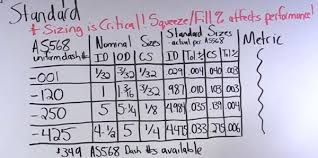 Standard
* Sizing is Critical! Squeeze/Fill % affects performance!
AS568 Nominal Sizes Standard Sizes Metric
actual per AS568
uniform dash# ID OD CS ID Tol± CS Tol±
-001 1/32 3/32 1/32 .029 .004 .040 .003
-120 1 1 3/16 3/32 .987 .010 .103 .003
-250 5 5 1/4 1/8 4.984 .035 .139 .004
-425 4 1/2 5 1/4 4.475 .033 .275 .006
*349 AS568 Dash #s available